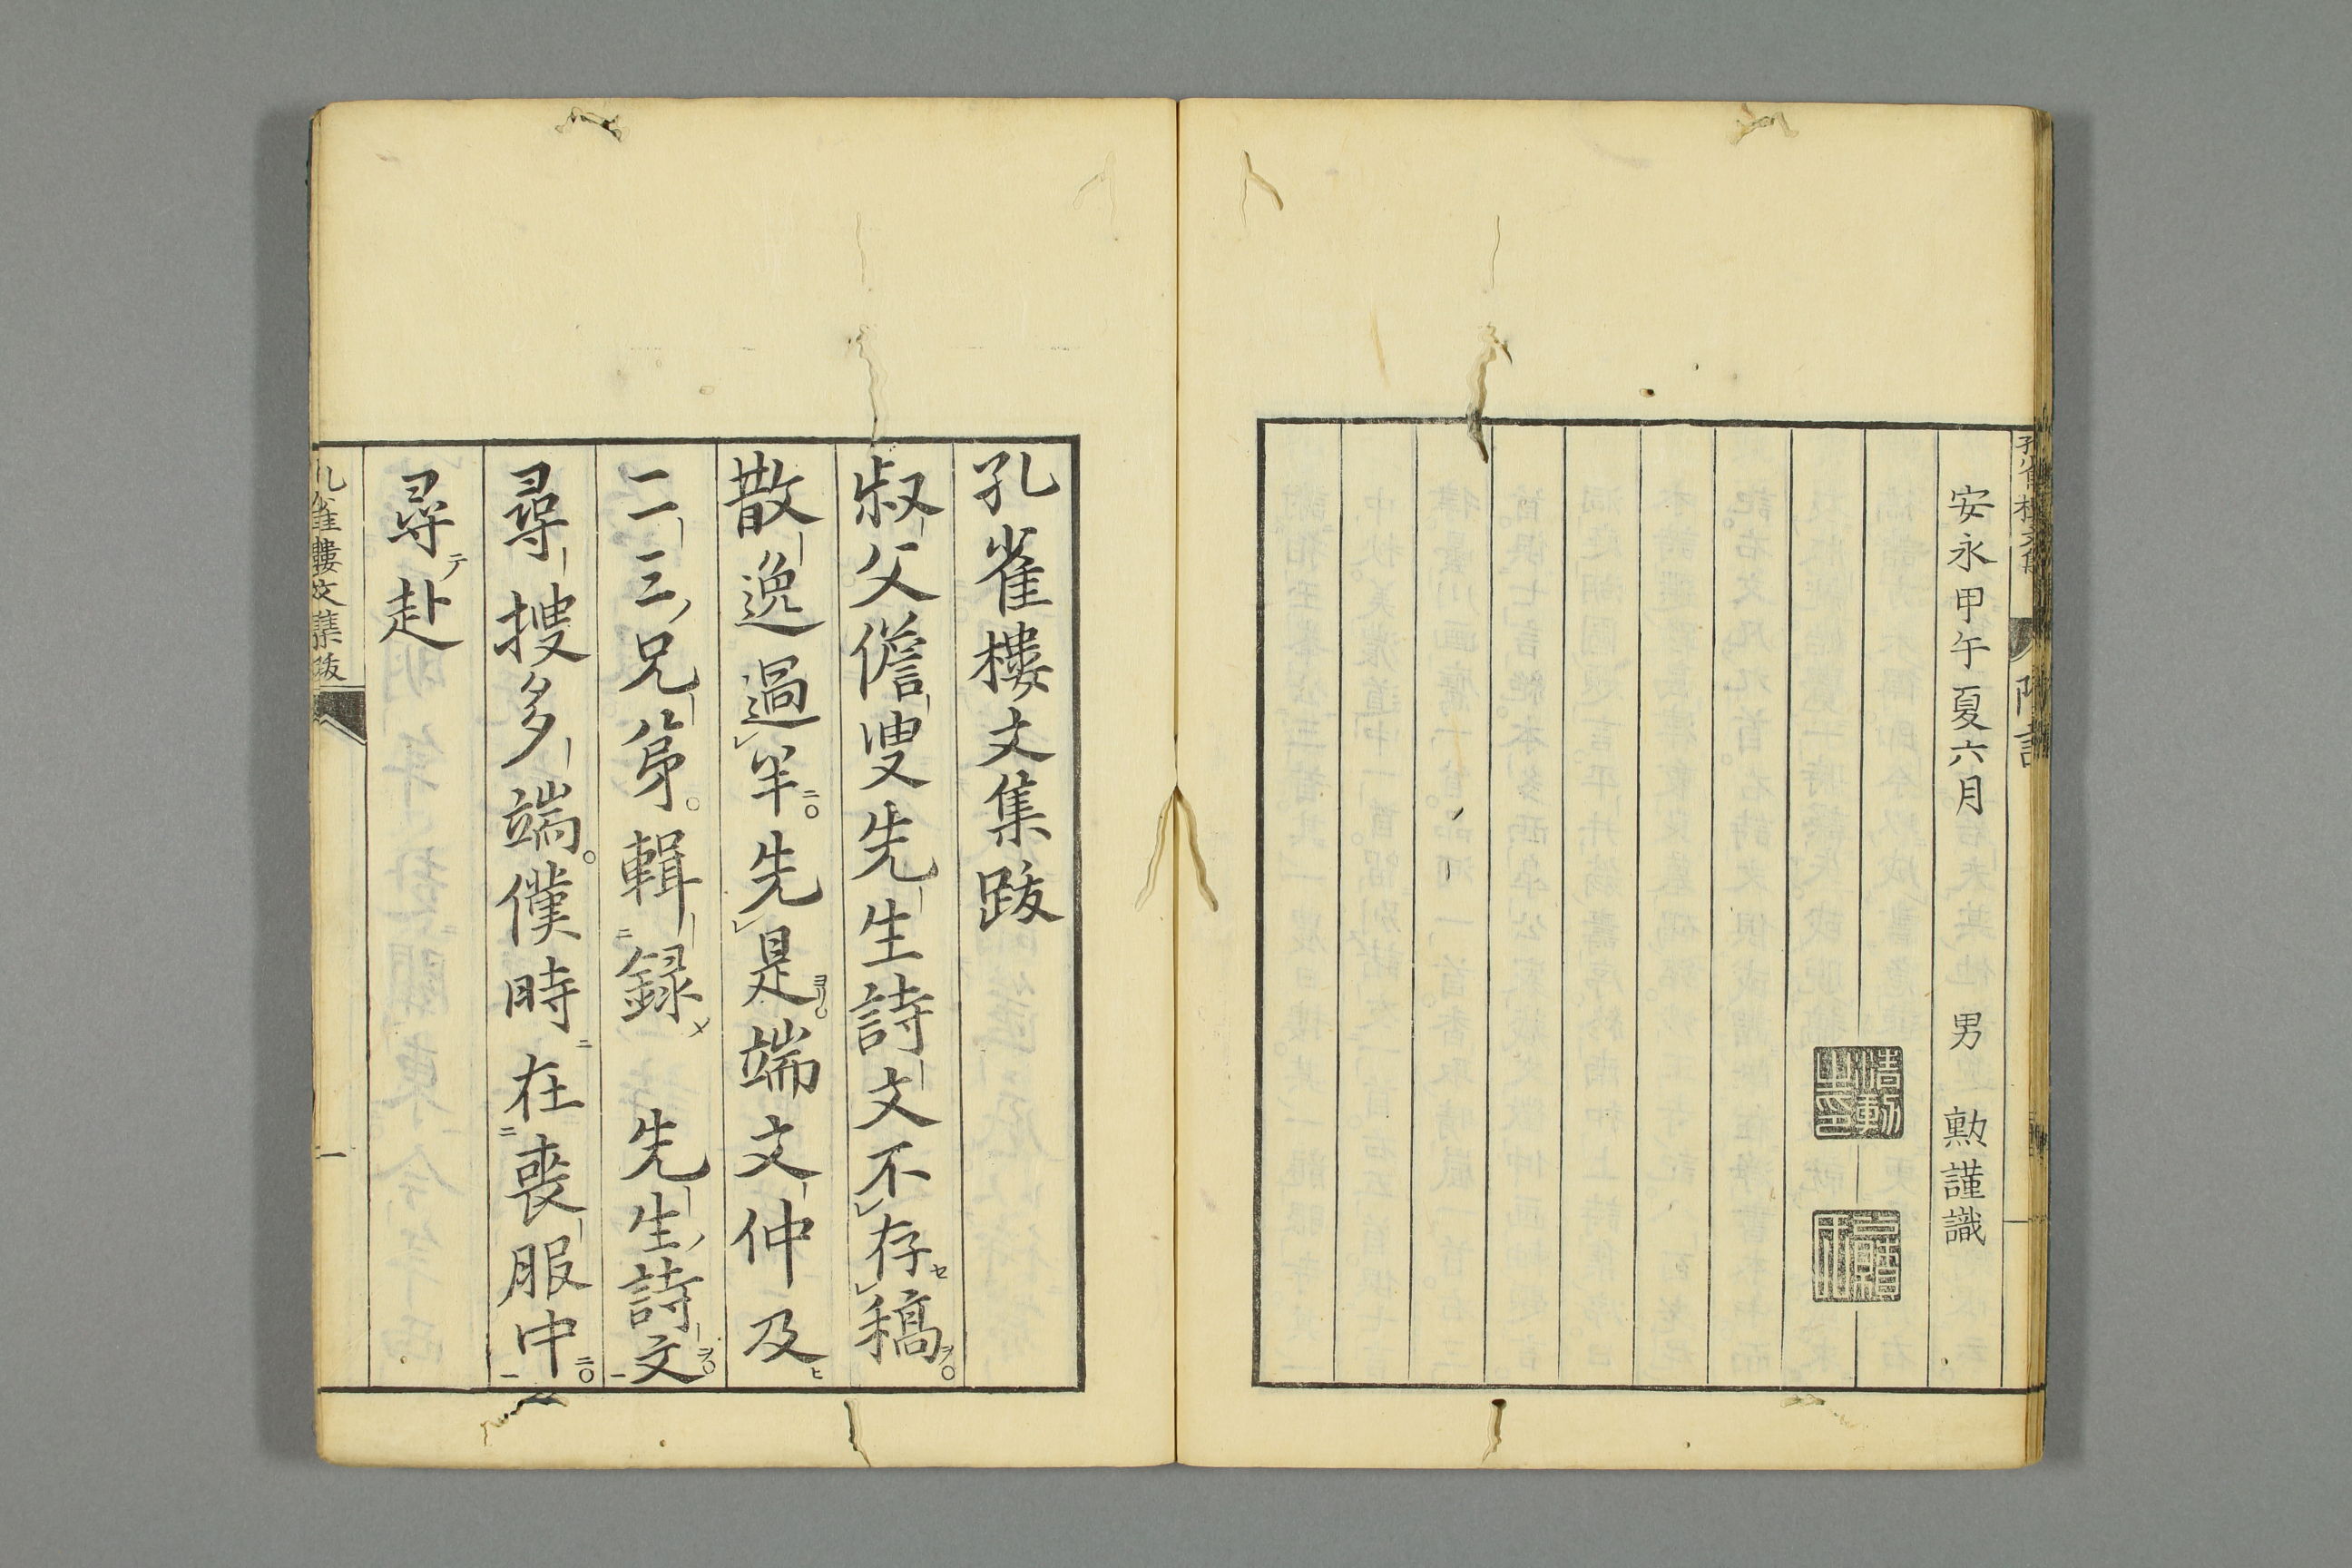 安永甲午夏六月 男 勲謹識
孔雀樓文集跋
叔父儋叟先生詩文不存稿
散逸過半先是端文仲及
二三兄弟輯録 先生詩文
尋搜多端僕時在喪服中
尋赴
孔雀樓文集跋 一